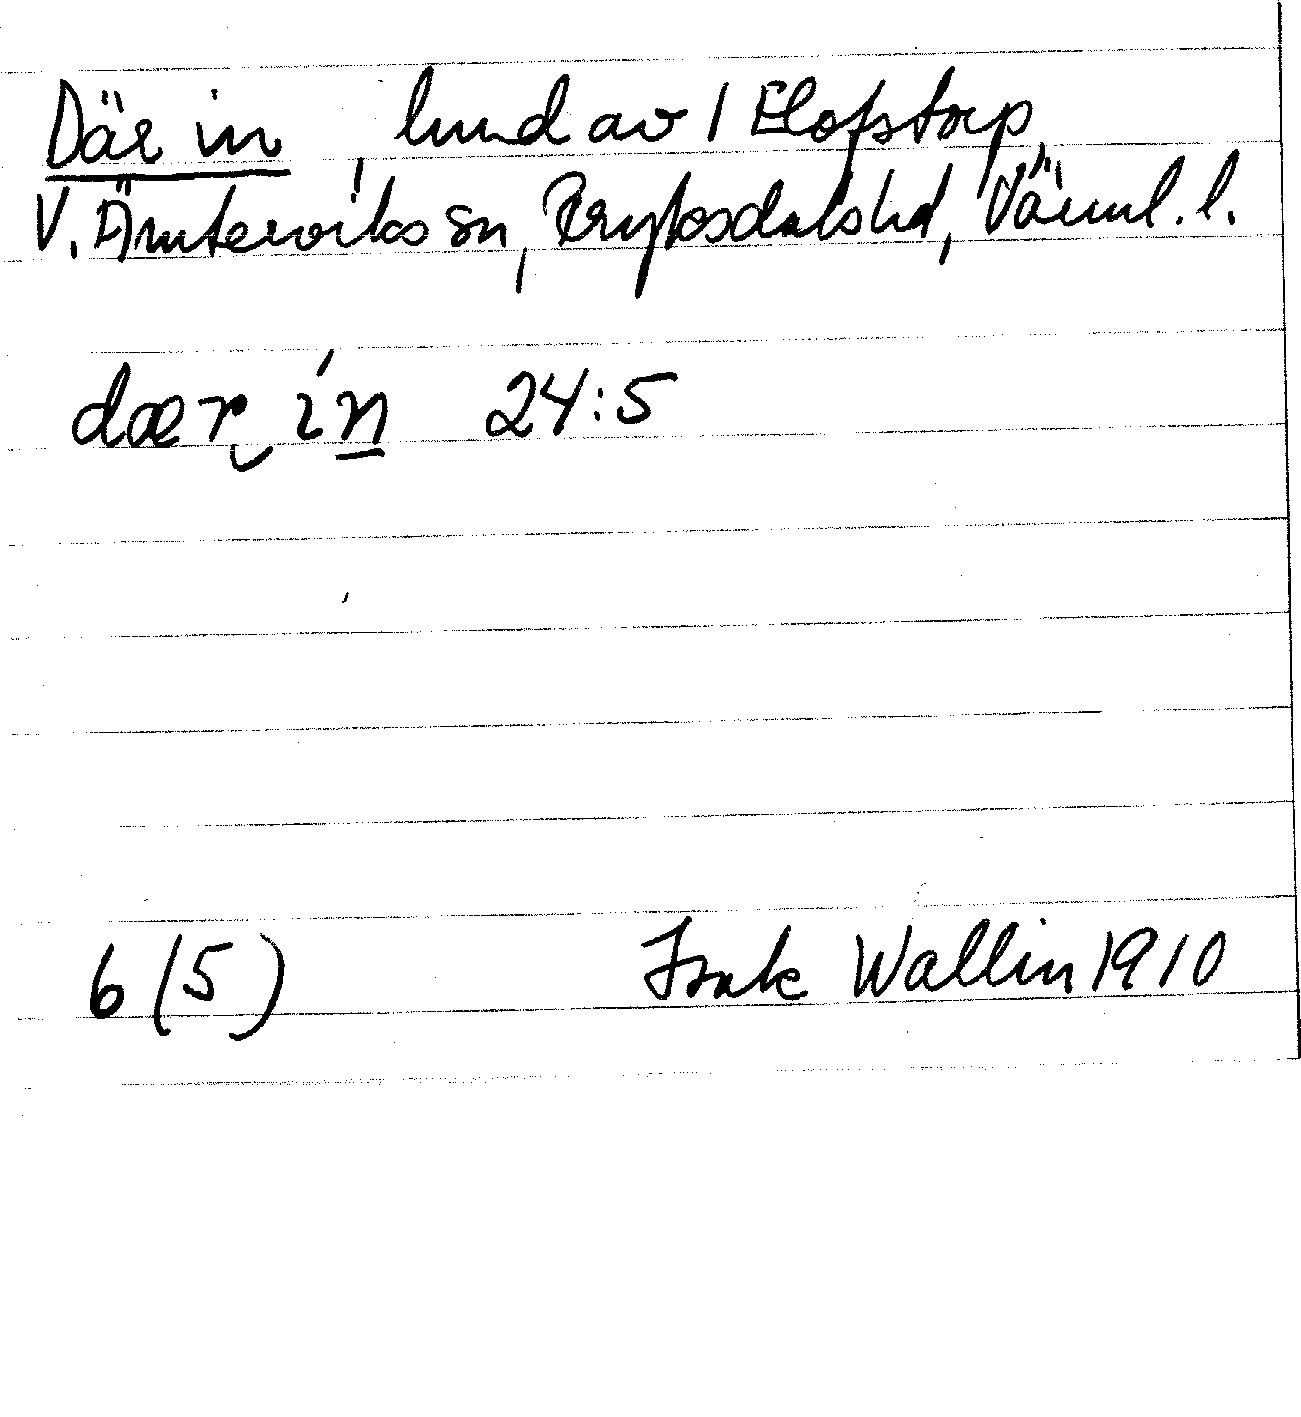 Där in, lund av 1 Elofstorp,
V. Ämterviks sn, Fryksdals hd, Värml. l.
dær ín 24:5
6 (5) Isak Wallin 1910